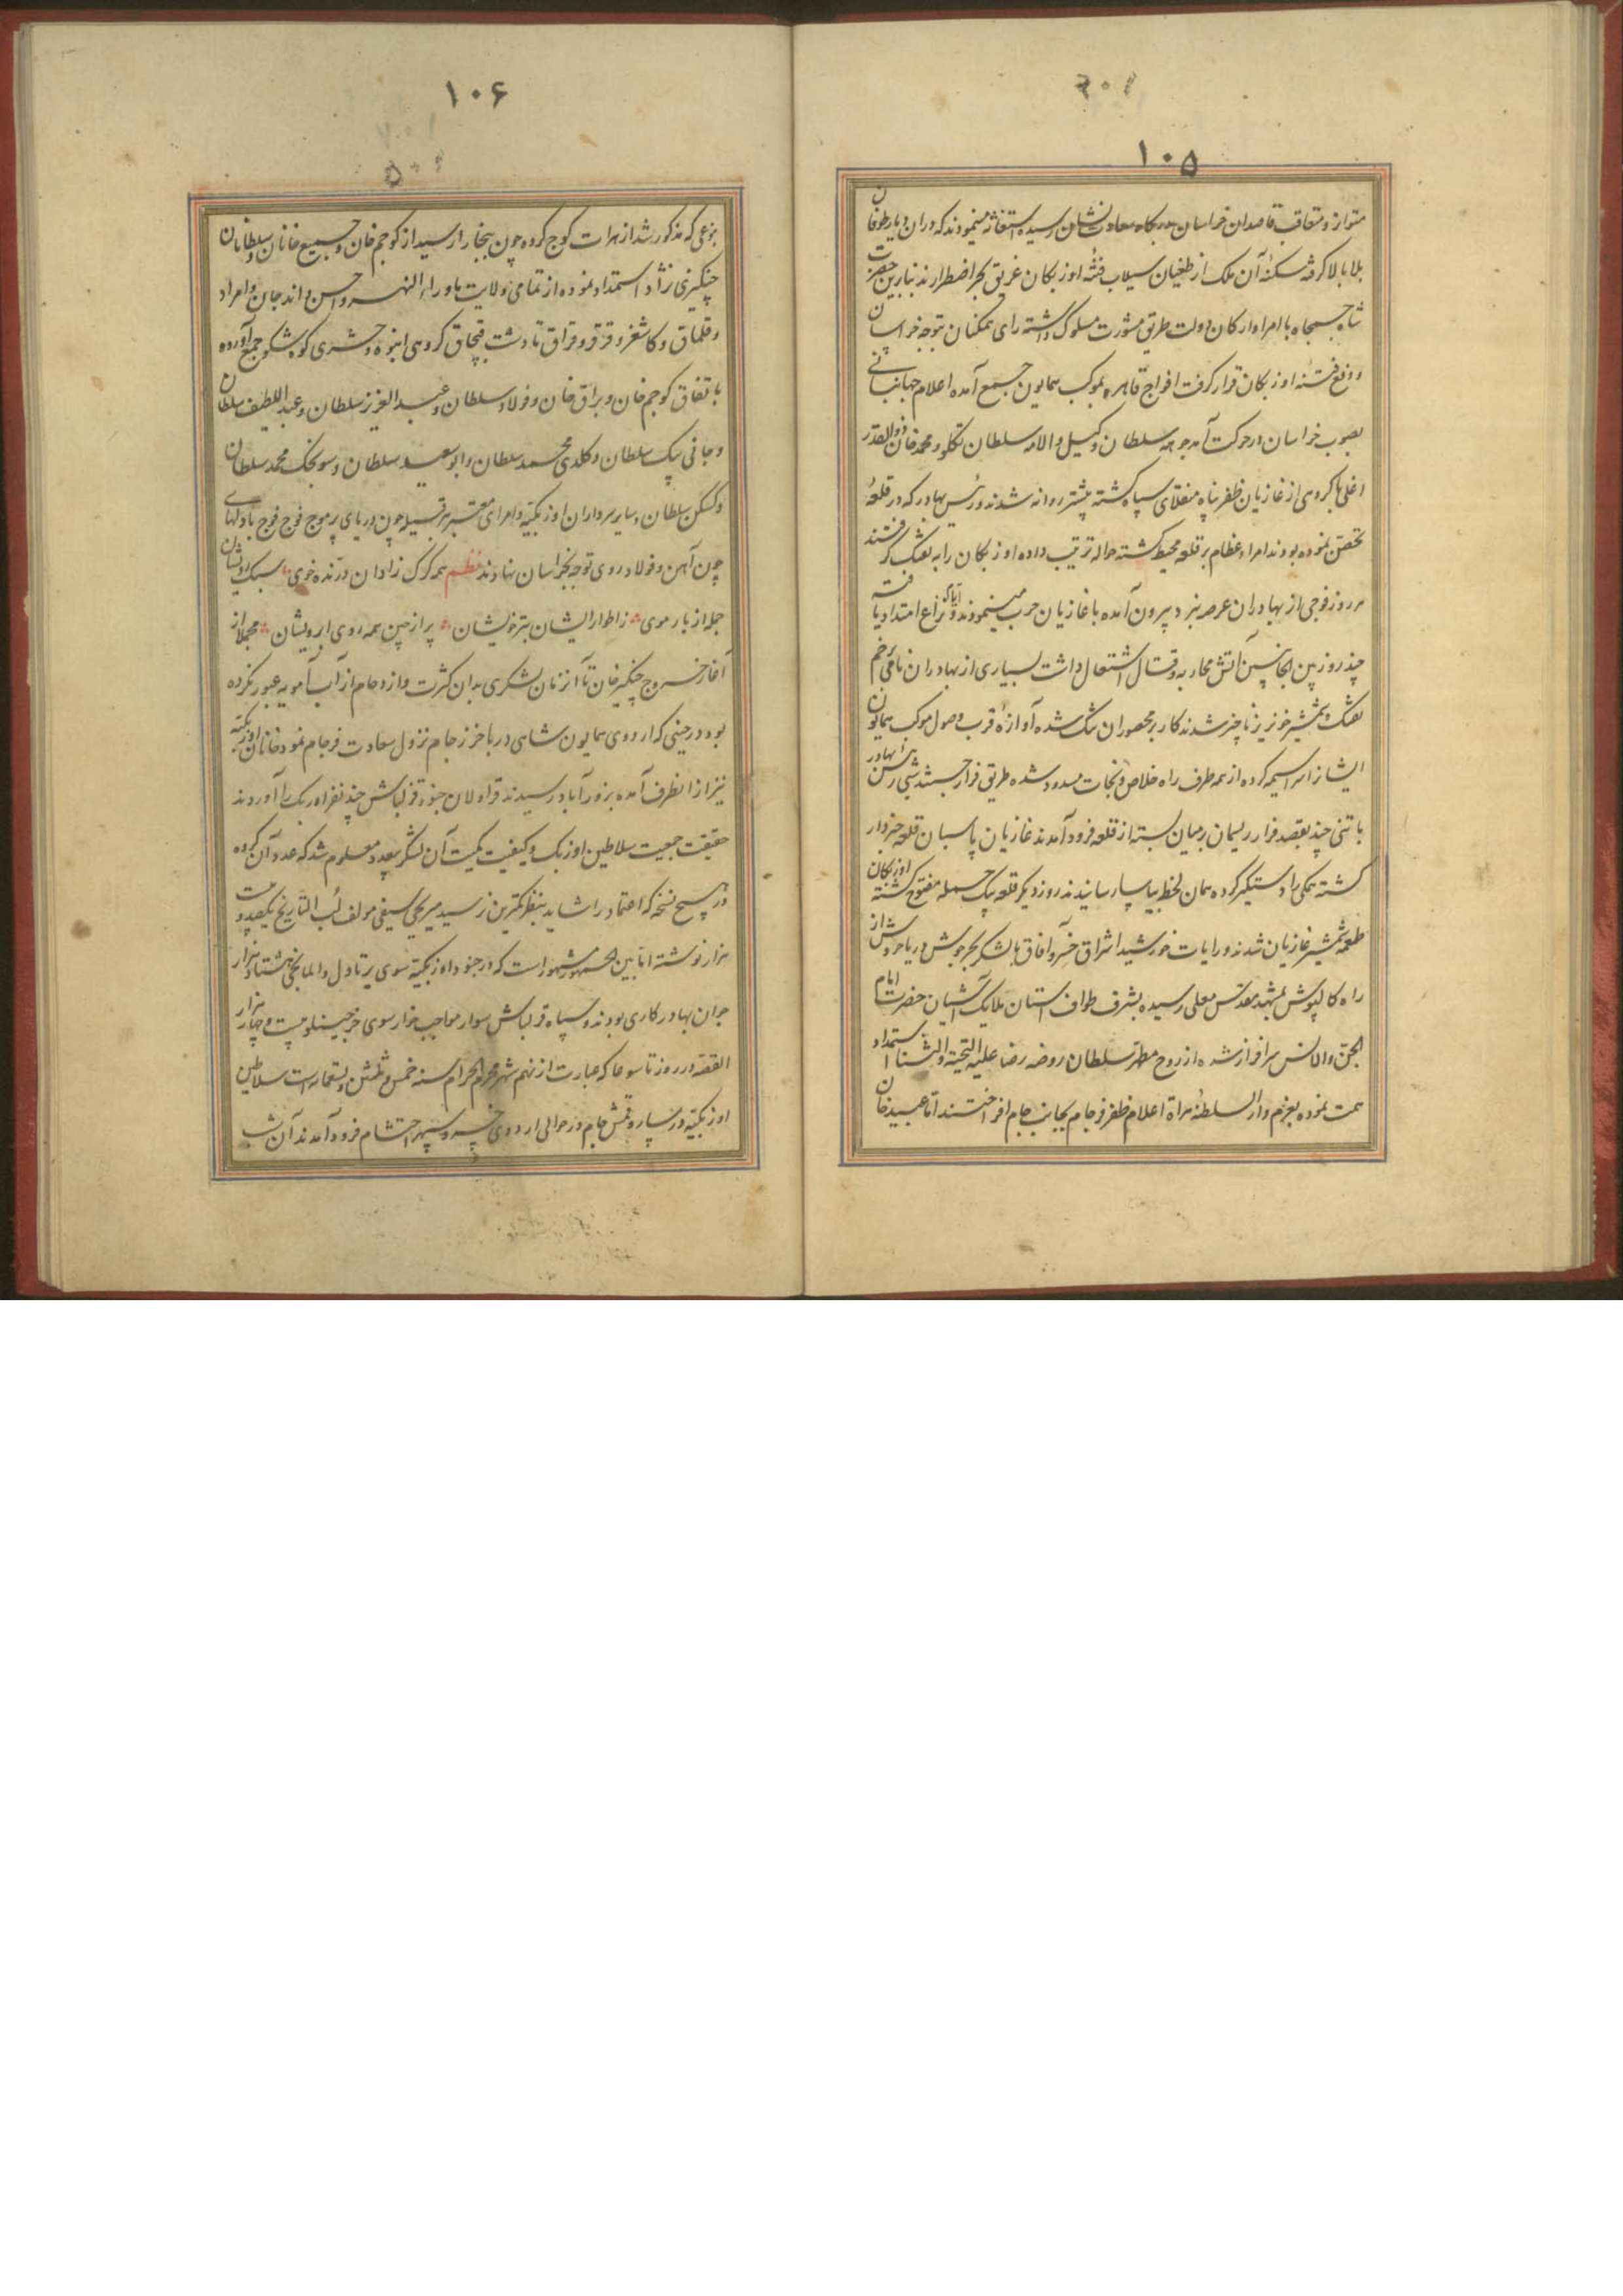 ۱۰۵
متواتر و متعاقب قاصدان خراسان بدرگاه معادلت نشان رسیده استغاثه مینمودند که در آن دیار طوفان
بلا بالا گرفته سکنهٔ آن ملک از طغیان سیلاب فتنهٔ اوزبکان غریق بحر اضطرارند بنابرین حضرت
شاه جمجاه با امرا و ارکان دولت طریق مشورت مسلوک داشته رای همگنان بتوجه خراسان
و دفع فتنه اوزبکان قرار گرفت افواج قاهره بموکب همایون جمع آمده اعلام جهانبانی
بصوب خراسان در حرکت آمد چوهه سلطان وکیل و الامه سلطان تکلو و محمد خان ذوالقدر
اغلی با گروهی از غازیان ظفر پناه منقلای سپاه گشته پیشتر روانه شدند و بهادر که در قلعهٔ
تحصن نموده بودند امراء عظام بر قلعه محیط گشته حواله ترتیب داده اوزبکان را به تفنگ گرفتند
هر روز فوجی از بهادران عرصه نبرد بیرون آمده با غازیان حرب مینمودند و نزاع امتداد یافته
چند روز بین الجانبین آتش محاربه و قتال اشتعال داشت بسیاری از بهادران نامی زخم
تفنگ و شمشیر خونریز ناچیز شدند کار بر محصوران تنگ شده آوازهٔ قرب وصول موکب همایون
ایشانرا سراسیمه کرده از همه طرف راه خلاص و نجات مسدود شده طریق فرار جستند شبی بهادر
با تنی چند بقصد فرار ریسمان بر میان بسته از قلعه فرود آمدند غازیان پاسبان قلعه خبردار
گشته همگی را دستگیر کرده همان لحظه بیاسا رسانیدند روز دیگر قلعه بیک حمله مفتوح گشته اوزبکان
طعمهٔ شمشیر غازیان شدند و رایات خورشید اشراق خسرو آفاق با لشکر بحر جوش دریا خروش از
راه کالپوش بمشهد مقدس معلی رسیده بشرف طواف آستان ملایک آشیان حضرت امام
الجن والانس سرافراز شده از روح مطهر سلطان روضه رضا علیه التحیه والثنا استمداد
همت نموده بعزم دار السلطنهٔ هراة اعلام ظفر فرجام بجانب جام افراختند اما عبید خان
۱۰۶
بنوعی که مذکور شد از هرات کوچ کرده چون ببخارا رسید از کوجم خان و جمیع خانان و سلطانان
چنگیزی نژاد استمداد نموده از تمامی ولایت ماوراء النهر و اندجان و
و قلماق و کاشغر و قرقر و قزاق تا دشت قبچاق گروهی انبوه و حشری کوه شکوه جمع آورده
باتفاق کوجم خان و براق خان و فولاد سلطان و عبد العزیز سلطان و عبد اللطیف سلطان
و جانی بیک سلطان و کلدی محمد سلطان و ابو سعید سلطان و سونجک محمد سلطان
و کسکن سلطان و سایر سرداران اوزبکیه و امرای معتبر هر قبیله چون دریای پر موج فوج فوج با دلهای
چون آهن و فولاد روی توجه بخراسان نهادند نظم همه گرگ زادان درنده خوی
زاطوار ایشان بتر خویشان پر از چین همه روی ابرویشان مجملا از
آغاز خروج چنگیز خان تا آن زمان لشکری بدان کثرت و ازدحام از آب آمویه عبور نکرده
بود در حینی که اردوی همایون شاهی در باخرز جام نزول سعادت فرجام نمود خانان اوزبکیه
نیز از آنطرف آمده بزورآباد رسیدند قراولان جنود قزلباش چند نفر اوزبک را آوردند
حقیقت جمعیت سلاطین اوزبک و کیفیت کمیت آن لشکر بیعدد معلوم شد که عدد آن گروه
در هیچ نسخه که اعتماد را شاید بنظر کمترین نرسید میر یحیی سیفی مولف لب التاریخ یکصد و
هزار نوشته اما بین الجمهور مشهور است که در جنود اوزبکیه سوی یرتاول و المانجی هشتاد هزار
جوان بهادر کاری بودند و سپاه قزلباش سوار مواجب خوار سوی بیست و چهار هزار
القصه در روز تاسوعا که عبارت از نهم شهر محرم الحرام سنه خمس و ثلثین و تسعمائه است سلاطین
اوزبکیه در سارو قمش جام در حوالی اردوی خسرو سپهر احتشام فرود آمدند آن شب